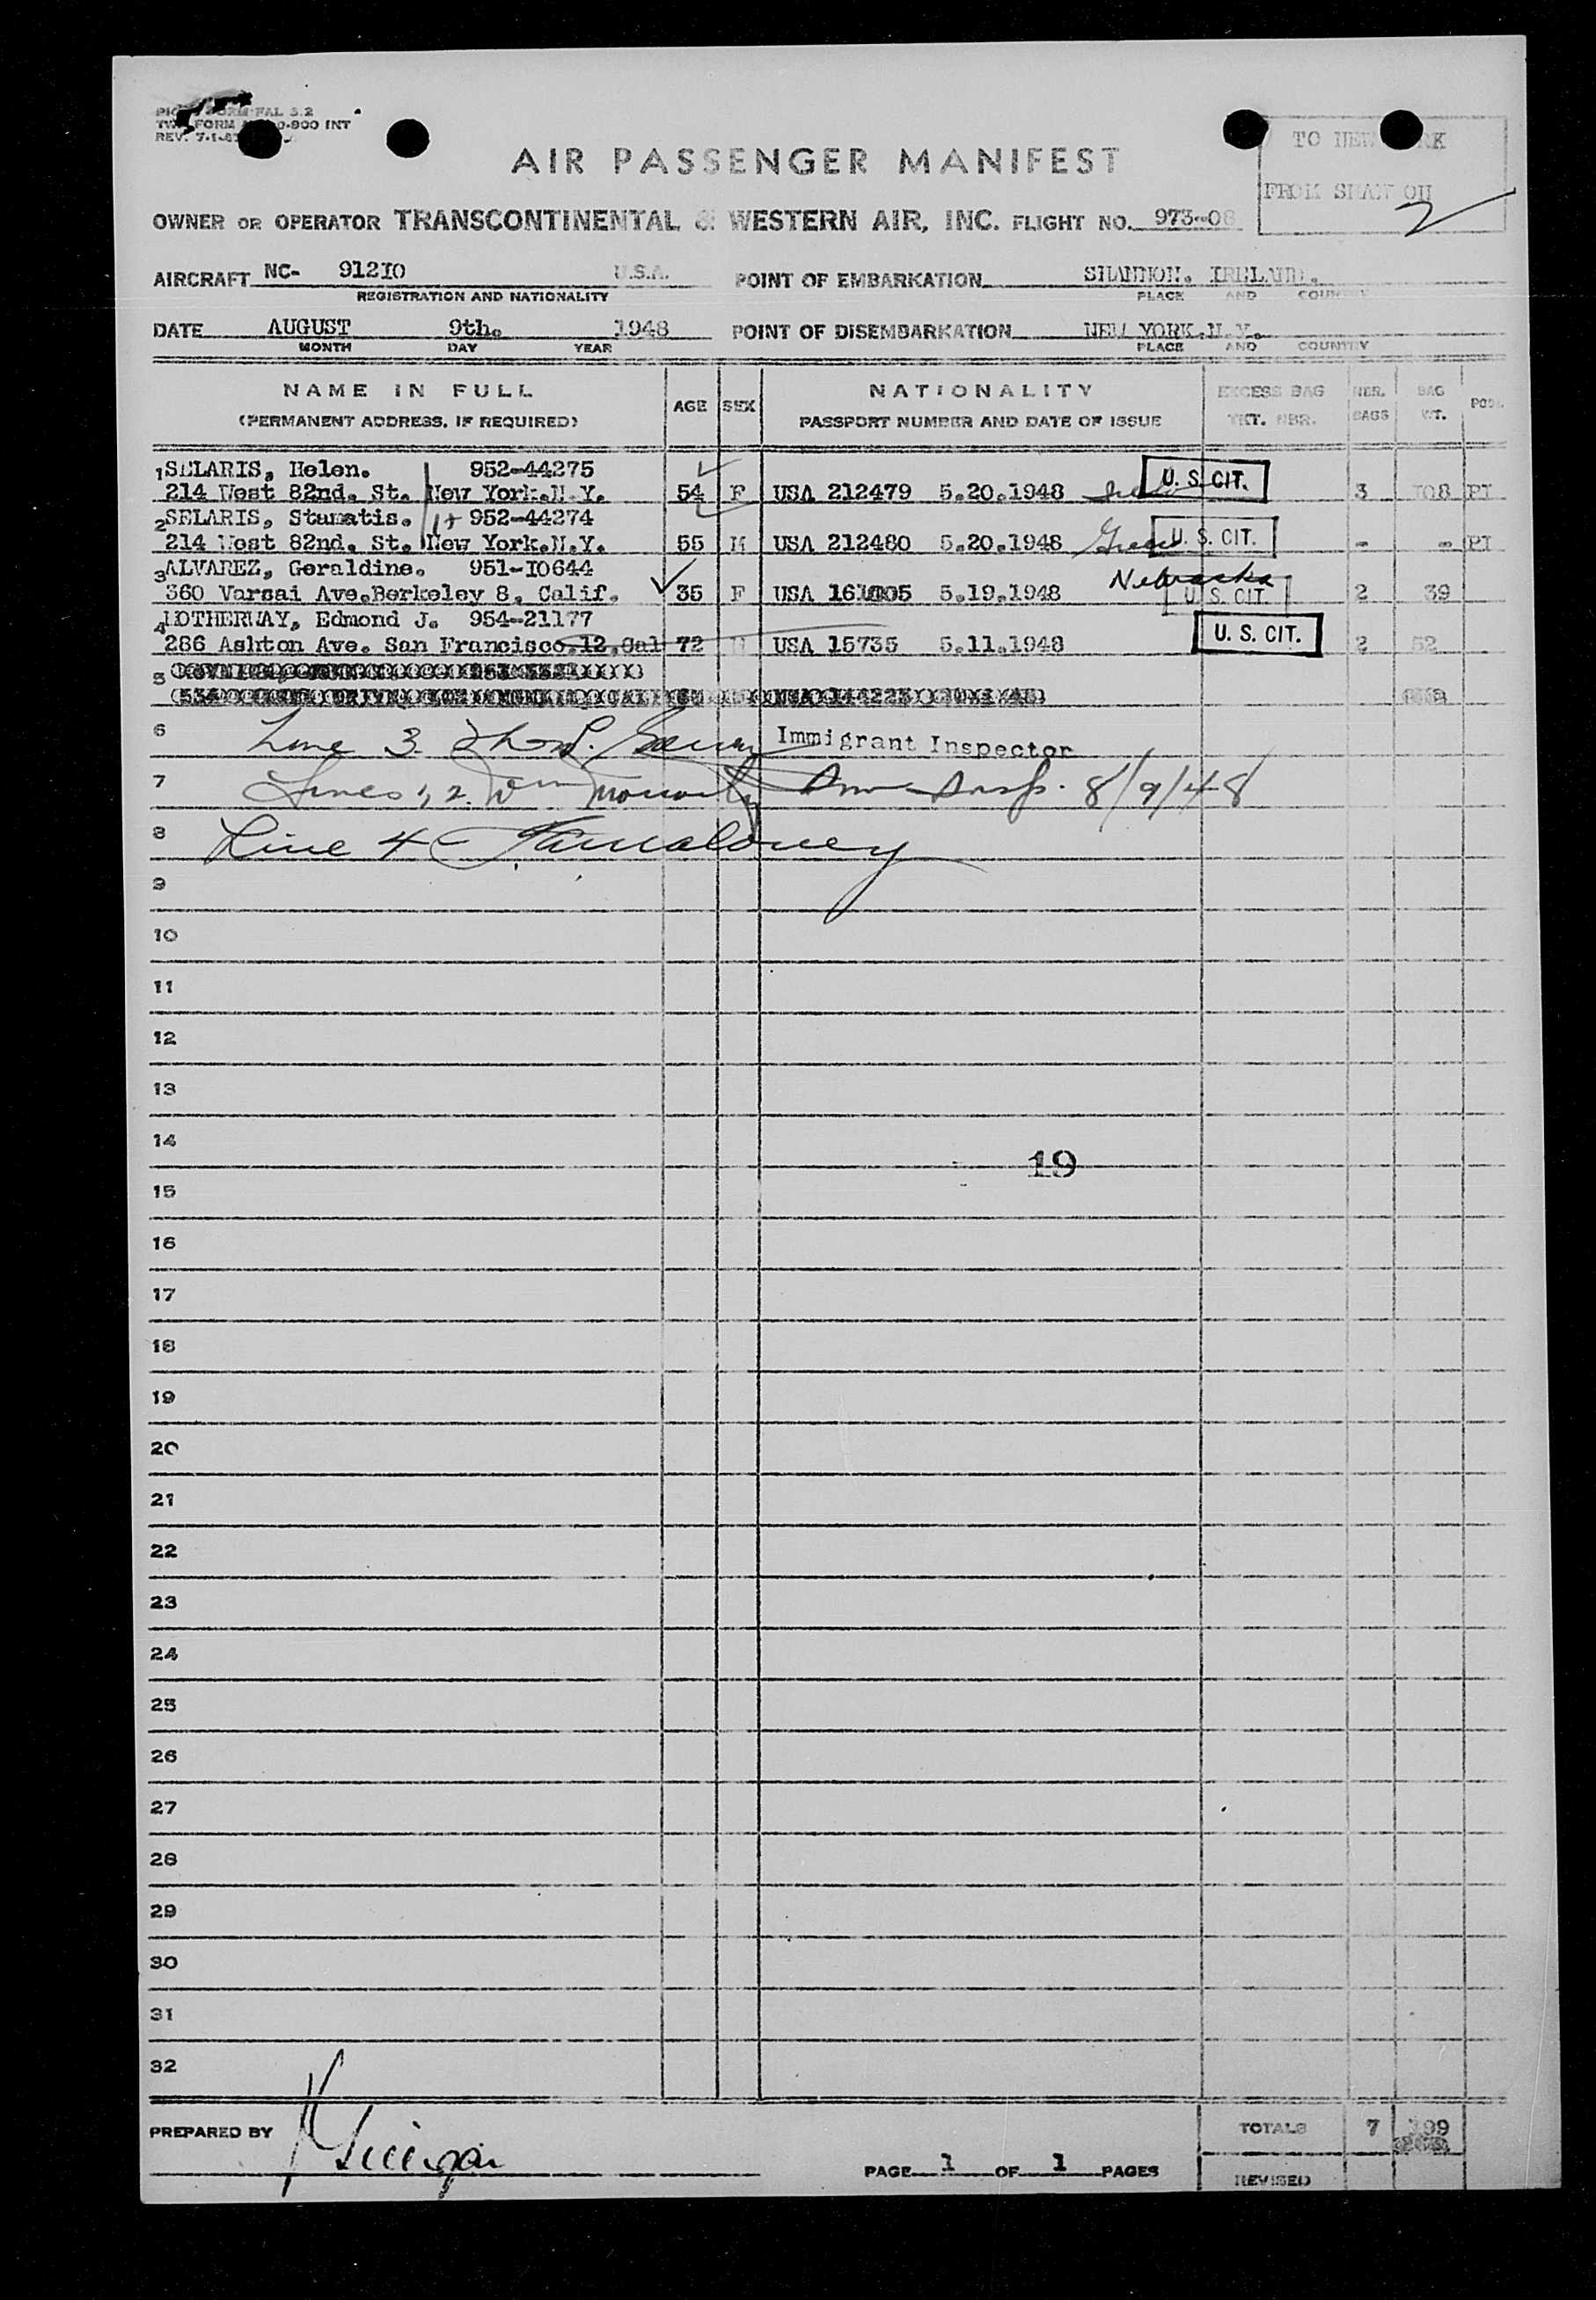 FORM PAL 3.2
FORM 0-800 INT
REV. 7-1-4
TO NEW YORK
FROM SHANNON
2
AIR PASSENGER MANIFEST
OWNER OR OPERATOR TRANSCONTINENTAL & WESTERN AIR, INC. FLIGHT NO. 973-08
AIRCRAFT NC- 91210 U.S.A. POINT OF EMBARKATION SHANNON. IRELAND.
REGISTRATION AND NATIONALITY PLACE AND COUNTRY
DATE AUGUST 9th. 1948 POINT OF DISEMBARKATION NEW YORK.N.Y.
MONTH DAY YEAR PLACE AND COUNTRY
NAME IN FULL AGE SEX NATIONALITY EXCESS BAG NBR. BAG POOL
(PERMANENT ADDRESS, IF REQUIRED) PASSPORT NUMBER AND DATE OF ISSUE TKT. NBR. BAGS WT.
1 SELARIS, Helen. 952-44275
214 West 82nd. St. New York.N.Y. 54 F USA 212479 5.20.1948 U. S. CIT. 3 108 PT
2 SELARIS, Stamatis. 952-44274
214 West 82nd. St. New York.N.Y. 55 M USA 212480 5.20.1948 Greece U. S. CIT. - - PT
3 ALVAREZ, Geraldine. 951-10644 Nebraska
360 Varsai Ave.Berkeley 8, Calif. 35 F USA 5.19.1948 U. S. CIT. 2 39
4 LOTHERWAY, Edmond J. 954-21177
286 Ashton Ave. San Francisco.12.Cal 72 M USA 15735 5.11.1948 U. S. CIT. 2 52
5
6 Line 3. Immigrant Inspector
7 Lines 1, 2. Wm Imm Insp. 8/9/48
8 Line 4 -
9
10
11
12
13
14
19
15
16
17
18
19
20
21
22
23
24
25
26
27
28
29
30
31
32
PREPARED BY TOTALS 7 199
PAGE 1 OF 1 PAGES REVISED